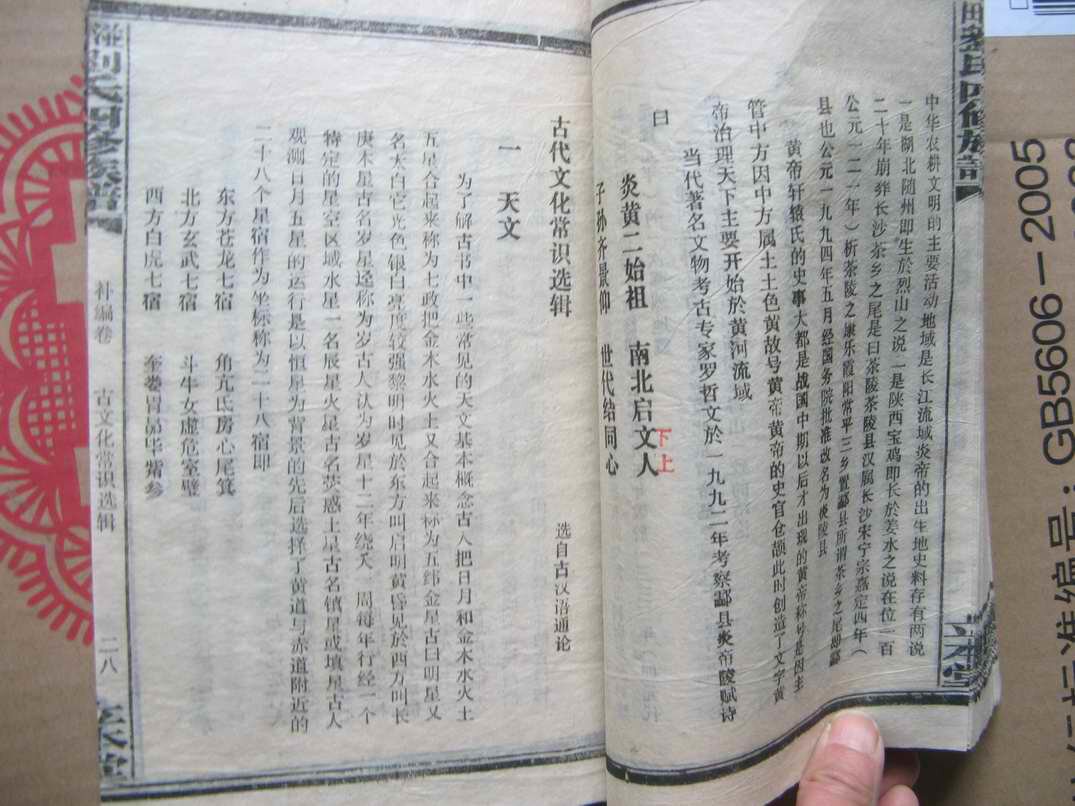 田刘氏四修族谱
立本堂
中华农耕文明的主要活动地域是长江流域炎帝的出生地史料存有两说
一是湖北随州即生於烈山之说一是陕西宝鸡即长於姜水之说在位一百
二十年崩葬长沙茶乡之尾是曰茶陵茶陵县汉属长沙宋宁宗嘉定四年(
公元一二一一年)析茶陵之康乐霞阳常平三乡置酃县所谓茶乡之尾即酃
县也公元一九九四年五月经国务院批准改名为炎陵县
黄帝轩辕氏的史事大都是战国中期以后才出现的黄帝称号是因主
管中方因中方属土土色黄故号黄帝黄帝的史官仓颉此时创造了文字黄
帝治理天下主要开始於黄河流域
当代著名文物考古专家罗哲文於一九九二年考察酃县炎帝陵赋诗
曰
炎黄二始祖 南北启文人
下上
子孙齐景仰 世代结同心
古代文化常识选辑
选自古汉语通论
一 天文
为了解古书中一些常见的天文基本概念古人把日月和金木水火土
五星合起来称为七政把金木水火土又合起来称为五纬金星古曰明星又
名太白它光色银白亮度较强黎明时见於东方叫启明黄昏见於西方叫长
庚木星古名岁星迳称为岁古人认为岁星十二年绕天一周每年行经一个
特定的星空区域水星一名辰星火星古名荧惑土星古名镇星或填星古人
观测日月五星的运行是以恒星为背景的先后选择了黄道与赤道附近的
二十八个星宿作为坐标称为二十八宿即
东方苍龙七宿 角亢氐房心尾箕
北方玄武七宿 斗牛女虚危室壁
西方白虎七宿 奎娄胃昴毕觜参
刘氏四修族谱
补编卷 古文化常识选辑 二八
GB5606—2005
行标准编号: